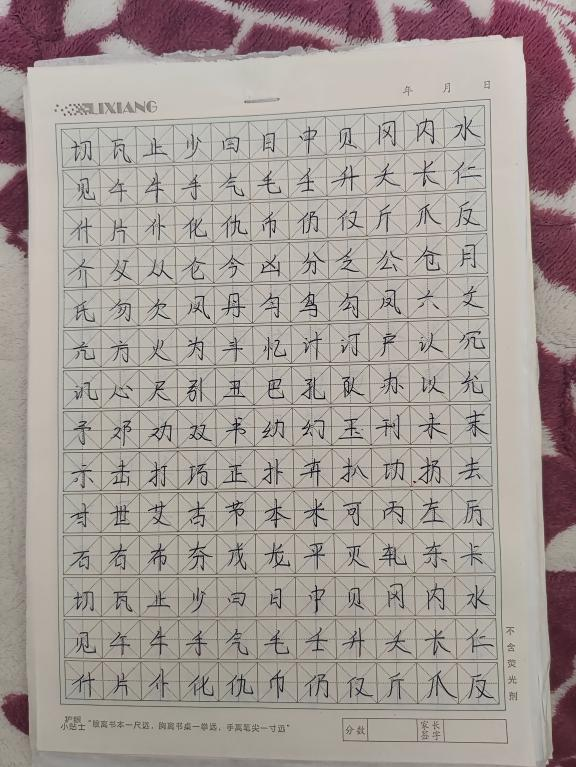 LIXIANG
年 月 日
切瓦止少曰日中贝冈内水
见午牛手气毛壬升夭长仁
什片仆化仇币仍仅斤爪反
介父从仑今凶分乏公仓月
氏勿欠风丹匀乌勾凤六文
亢方火为斗忆计订户认冗
讥心尺引丑巴孔队办以允
予邓劝双书幼幻玉刊未末
示击打巧正扑卉扒功扔去
甘世艾古节本术可丙左厉
石右布夯戊龙平灭轧东卡
切瓦止少曰日中贝冈内水
见午牛手气毛壬升夭长仁
什片仆化仇币仍仅斤爪反
不含荧光剂
护眼小贴士 "眼离书本一尺远，胸离书桌一拳远，手离笔尖一寸远"
分数
家长签字